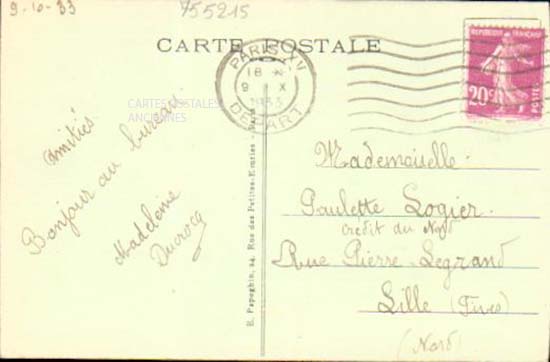 9-10-33
755215
CARTE POSTALE
PARIS XV
18
9 X
1933
DEPART
REPUBLIQUE FRANÇAISE
20c
POSTES
CARTES POSTALES
ANCIENNES
amitiés
Bonjour au bureau.
Madeleine
Ducrocq
E. Papeghin, 24, Rue des Petites-Ecuries
Mademoiselle
Paulette Logier.
crédit du Nord
Rue Pierre-Legrand
Lille (Fives)
(Nord)